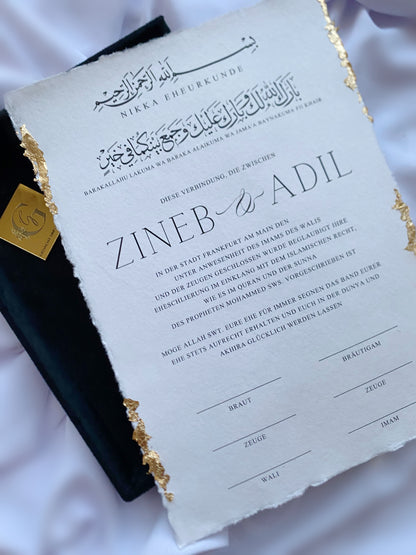 بسم الله الرحمن الرحيم
NIKKA EHEURKUNDE
بارك الله لك وبارك عليك وجمع بينكما في خير
BARAKALLAHU LAKUMA WA BARAKA ALAIKUMA WA JAMA'A BAYNAKUMA FIL KHAIR
DIESE VERBINDUNG, DIE ZWISCHEN
ZINEB & ADIL
IN DER STADT FRANKFURT AM MAIN DEN
UNTER ANWESENHEIT DES IMAMS DES WALIS
UND DER ZEUGEN GESCHLOSSEN WURDE BEGLAUBIGT IHRE
EHESCHLIERUNG IM EINKLANG MIT DEM ISLAMISCHEN RECHT,
WIE ES IM QURAN UND DER SUNNA
DES PROPHETEN MOHAMMED SWS. VORGESCHRIEBEN IST
MOGE ALLAH SWT. EURE EHE FÜR IMMER SEGNEN DAS BAND EURER
EHE STETS AUFRECHT ERHALTEN UND EUCH IN DER DUNYA UND
AKHIRA GLÜCKLICH WERDEN LASSEN
BRAUT
BRÄUTIGAM
ZEUGE
ZEUGE
WALI
IMAM